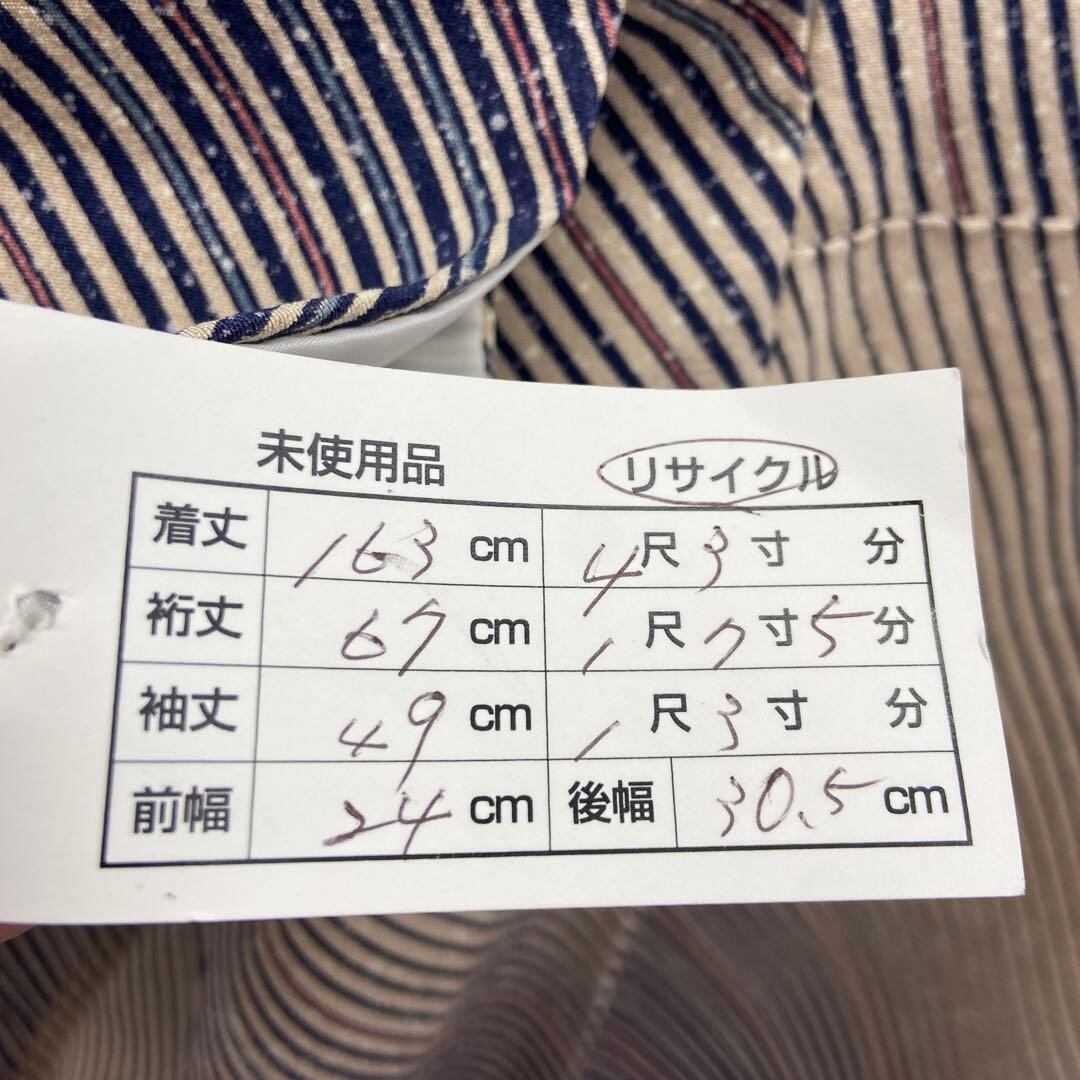 未使用品 リサイクル
着丈 163 cm 4尺3寸 分
裄丈 67 cm 1尺7寸5分
袖丈 49 cm 1尺3寸 分
前幅 24 cm 後幅 30.5 cm